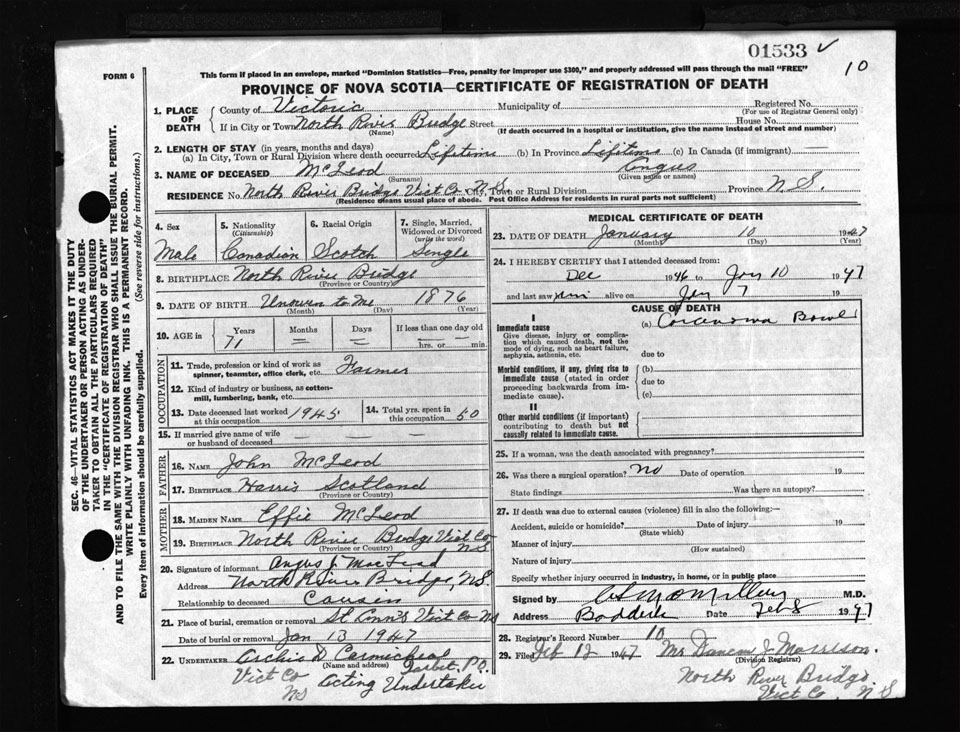 01533 ✓
10
FORM 6
This form if placed in an envelope, marked "Dominion Statistics—Free, penalty for improper use $300," and properly addressed will pass through the mail "FREE"
PROVINCE OF NOVA SCOTIA—CERTIFICATE OF REGISTRATION OF DEATH
SEC. 46—VITAL STATISTICS ACT MAKES IT THE DUTY
OF THE UNDERTAKER OR PERSON ACTING AS UNDER-
TAKER TO OBTAIN ALL THE PARTICULARS REQUIRED
IN THE "CERTIFICATE OF REGISTRATION OF DEATH"
AND TO FILE THE SAME WITH THE DIVISION REGISTRAR WHO SHALL ISSUE THE BURIAL PERMIT.
WRITE PLAINLY WITH UNFADING INK. THIS IS A PERMANENT RECORD.
Every item of information should be carefully supplied. (See reverse side for instructions.)
1. PLACE OF DEATH County of Victoria Municipality of Registered No.
(For use of Registrar General only)
If in City or Town North River Bridge Street House No.
(Name) (If death occurred in a hospital or institution, give the name instead of street and number)
2. LENGTH OF STAY (in years, months and days)
(a) In City, Town or Rural Division where death occurred Lifetime (b) In Province Lifetime (c) In Canada (if immigrant) —
3. NAME OF DECEASED McLeod Angus
(Surname) (Given name or names)
RESIDENCE No. North River Bridge Vict Co. N.S. City, Town or Rural Division Province N.S.
(Residence means usual place of abode. Post Office Address for residents in rural parts not sufficient)
4. Sex Male
5. Nationality (Citizenship) Canadian
6. Racial Origin Scotch
7. Single, Married, Widowed or Divorced (write the word) Single
8. BIRTHPLACE North River Bridge
(Province or Country)
9. DATE OF BIRTH Unown to Me 1876
(Month) (Day) (Year)
10. AGE in Years 71 Months — Days — If less than one day old hrs. or min.
OCCUPATION
11. Trade, profession or kind of work as spinner, teamster, office clerk, etc. Farmer
12. Kind of industry or business, as cotton-mill, lumbering, bank, etc.
13. Date deceased last worked at this occupation 1945
14. Total yrs. spent in this occupation 50
15. If married give name of wife or husband of deceased — — — —
FATHER
16. NAME John McLeod
17. BIRTHPLACE Harris Scotland
(Province or Country)
MOTHER
18. MAIDEN NAME Effie McLeod
19. BIRTHPLACE North River Bridge Vict Co NS
(Province or Country)
20. Signature of informant Angus J. MacLeod
Address North River Bridge, NS
Relationship to deceased Cousin
21. Place of burial, cremation or removal St Ann's Vict Co NS
Date of burial or removal Jan 13 1947
22. UNDERTAKER Archie D Carmicheal Tarbet P.O.
(Name and address)
Vict Co NS Acting Undertaker
MEDICAL CERTIFICATE OF DEATH
23. DATE OF DEATH January 10 1947
(Month) (Day) (Year)
24. I HEREBY CERTIFY that I attended deceased from:
Dec 1946 to Jan 10 1947
and last saw him alive on Jan 7 19
CAUSE OF DEATH
I
Immediate cause
Give disease, injury or complication which caused death, not the mode of dying, such as heart failure, asphyxia, asthenia, etc.
(a) Carcinoma Bowel
due to
Morbid conditions, if any, giving rise to immediate cause (stated in order proceeding backwards from immediate cause).
(b)
due to
(c)
II
Other morbid conditions (if important) contributing to death but not causally related to immediate cause.
25. If a woman, was the death associated with pregnancy?
26. Was there a surgical operation? No Date of operation 19
State findings Was there an autopsy?
27. If death was due to external causes (violence) fill in also the following:—
Accident, suicide or homicide? Date of injury 19
(State which)
Manner of injury
(How sustained)
Nature of injury
Specify whether injury occurred in industry, in home, or in public place
Signed by M.D.
Address Baddeck Date Feb 8 1947
28. Registrar's Record Number 10
29. Filed Feb 12 1947 Mr Duncan J Morrison.
(Division Registrar)
North River Bridge
Vict Co, N.S.